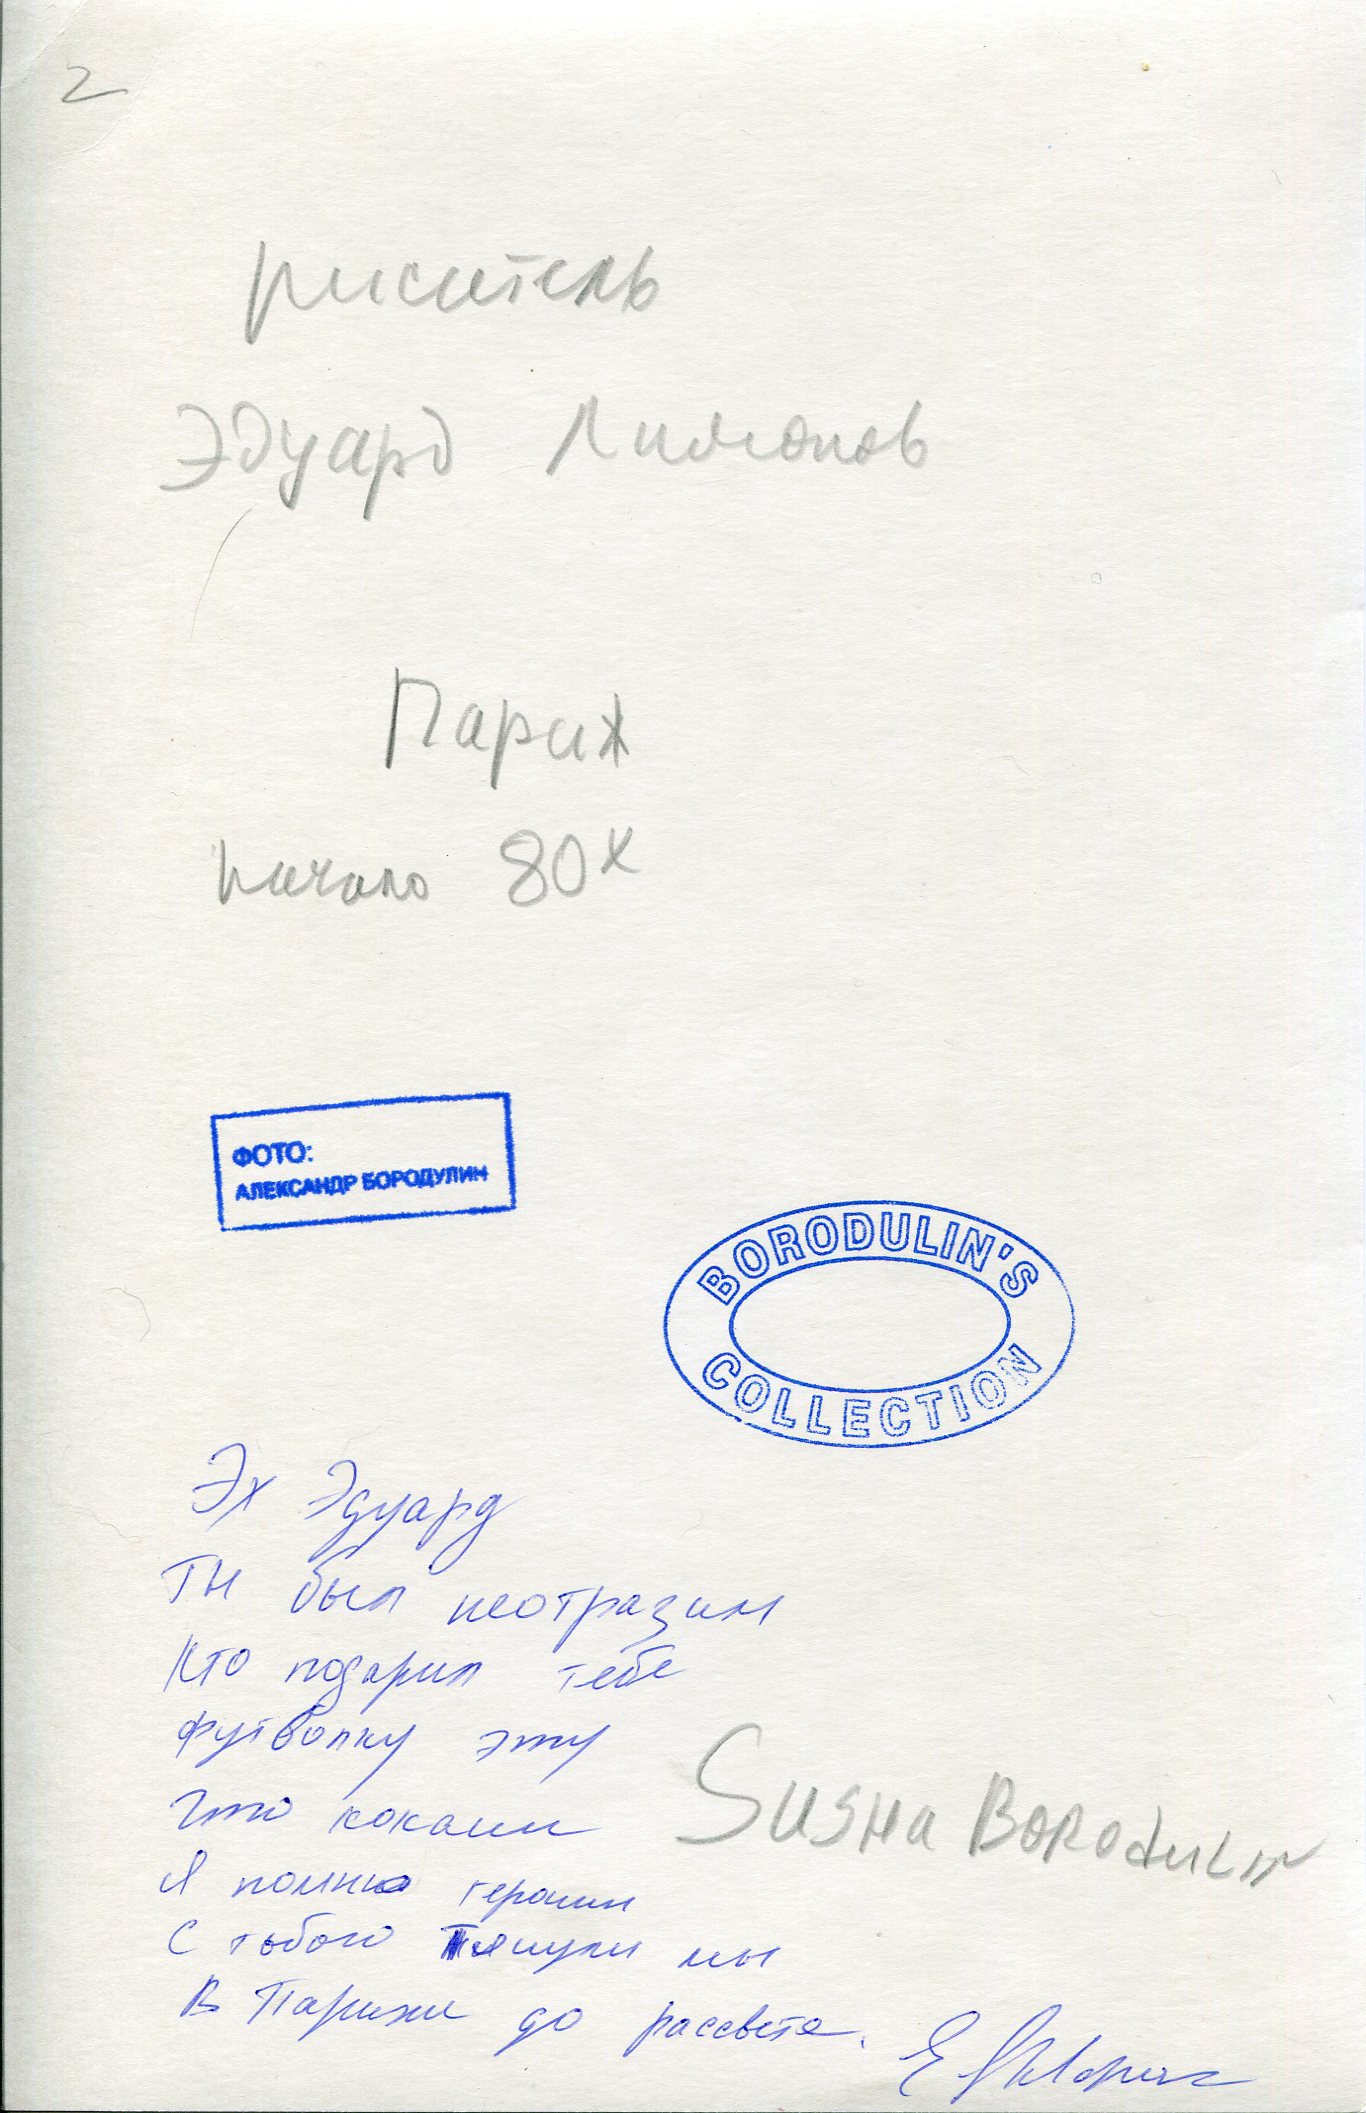 2
писатель
Эдуард Лимонов
Париж
начало 80х
ФОТО:
АЛЕКСАНДР БОРОДУЛИН
BORODULIN'S
COLLECTION
Эх Эдуард
ты был неотразим
Кто подарил тебе
футболку эту
Что кокаин
Я помню героин
С тобою тянули мы
В Париже до рассвета.
SUSHA BORODULIN